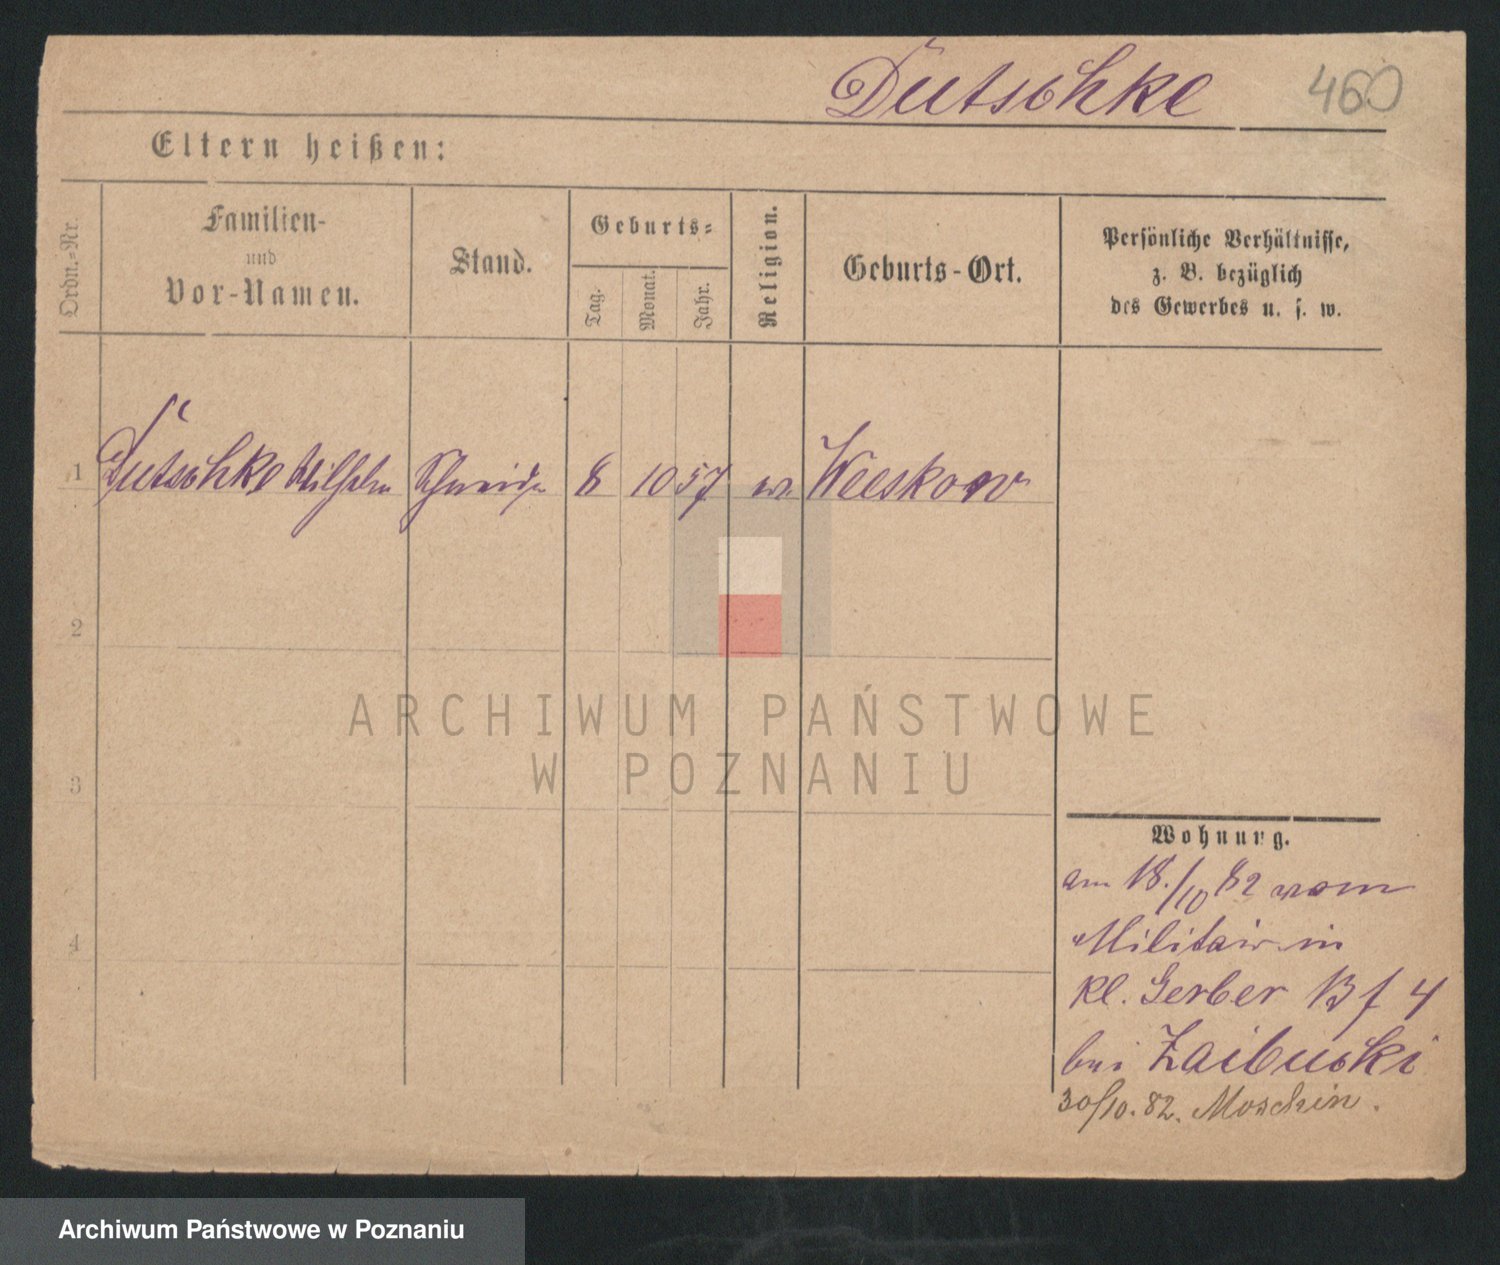 Dütschke 460
Eltern heißen:
Ordn.-Nr.
Familien-
und
Vor-Namen.
Stand.
Geburts-
Tag.
Monat.
Jahr.
Religion.
Geburts-Ort.
Persönliche Verhältnisse,
z. B. bezüglich
des Gewerbes u. s. w.
1 Dütschke Wilhelm Schneider 8 10 57 ev. Weeskow
2
3
4
ARCHIWUM PAŃSTWOWE
W POZNANIU
Wohnung.
am 18./10 82 vom
Militair in
kl. Gerber 4
bei Zaibuski
30/10. 82. Moschin.
Archiwum Państwowe w Poznaniu